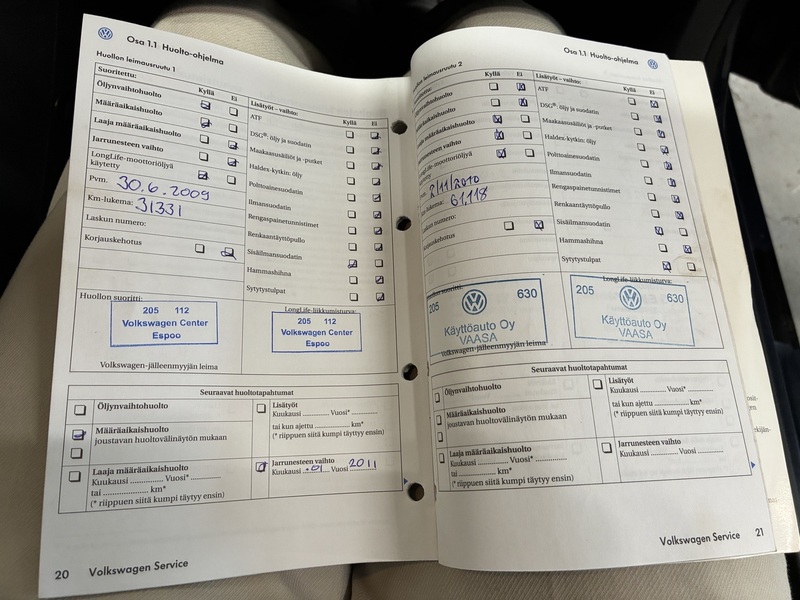 Osa 1.1 Huolto-ohjelma
Huollon leimausruutu 1
Suoritettu:
Kyllä Ei
Lisätyöt – vaihto:
Kyllä Ei
Öljynvaihtohuolto
Määräaikaishuolto
Laaja määräaikaishuolto
Jarrunesteen vaihto
LongLife-moottoriöljyä
käytetty
Pvm. 30.6.2009
Km-lukema: 31331
Laskun numero:
Korjauskehotus
ATF
DSG®: öljy ja suodatin
Maakaasusäiliöt ja -putket
Haldex-kytkin: öljy
Polttoainesuodatin
Ilmansuodatin
Rengaspainetunnistimet
Renkaantäyttöpullo
Sisäilmansuodatin
Hammashihna
Sytytystulpat
Huollon suoritti:
205 112
Volkswagen Center
Espoo
LongLife-liikkumisturva:
205 112
Volkswagen Center
Espoo
Volkswagen-jälleenmyyjän leima
Seuraavat huoltotapahtumat
Öljynvaihtohuolto
Määräaikaishuolto
joustavan huoltovälinäytön mukaan
Laaja määräaikaishuolto
Kuukausi ............. Vuosi* .............
tai .................. km*
(* riippuen siitä kumpi täytyy ensin)
Lisätyöt
Kuukausi ............ Vuosi* ............
tai kun ajettu .................. km*
(* riippuen siitä kumpi täytyy ensin)
Jarrunesteen vaihto
Kuukausi .01 Vuosi 2011
20 Volkswagen Service
Osa 1.1 Huolto-ohjelma
leimausruutu 2
Kyllä Ei
Lisätyöt – vaihto:
Kyllä Ei
LongLife-moottoriöljyä
2/11/2010
61,118
Laskun numero:
ATF
DSG®: öljy ja suodatin
Maakaasusäiliöt ja -putket
Haldex-kytkin: öljy
Polttoainesuodatin
Ilmansuodatin
Rengaspainetunnistimet
Renkaantäyttöpullo
Sisäilmansuodatin
Hammashihna
Sytytystulpat
205 630
Käyttöauto Oy
VAASA
LongLife-liikkumisturva:
205 630
Käyttöauto Oy
VAASA
Volkswagen-jälleenmyyjän leima
Seuraavat huoltotapahtumat
Öljynvaihtohuolto
Määräaikaishuolto
joustavan huoltovälinäytön mukaan
Laaja määräaikaishuolto
Kuukausi ............. Vuosi* .............
tai .................. km*
(* riippuen siitä kumpi täytyy ensin)
Lisätyöt
Kuukausi ............ Vuosi* ............
tai kun ajettu .................. km*
(* riippuen siitä kumpi täytyy ensin)
Jarrunesteen vaihto
Kuukausi ............ Vuosi ............
Volkswagen Service 21